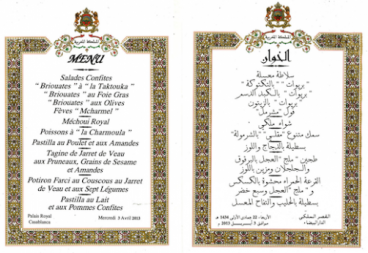 المملكة المغربية
MENU
Salades Confites
"Briouates" à "la Taktouka"
"Briouates" au Foie Gras
"Briouates" aux Olives
Fèves "Mcharmel"
Méchoui Royal
Poissons à "la Charmoula"
Pastilla au Poulet et aux Amandes
Tagine de Jarret de Veau
aux Pruneaux, Grains de Sesame
et Amandes
Potiron Farci au Couscous au Jarret
de Veau et aux Sept Légumes
Pastilla au Lait
et aux Pommes Confites
Palais Royal
Casablanca
Mercredi 3 Avril 2013
المملكة المغربية
الخوان
سلاطة معسلة
"بريوات" "التكتوكة"
"بريوات" بـالكبد المسمن
"بريوات" بـالزيتون
فول مشرمل
شواء ملكي
سمك متنوع "مقلي" "الشرمولة"
بسطيلة بالدجاج واللوز
طجين "ملج" العجل بالبرقوق
والجلجلان ومزين باللوز
القرعة الحمراء محشوة بالكسكس
و"ملج" العجل وسبع خضر
بسطيلة بالحليب والتفاح المعسل
القصر الملكي
الدار البيضاء
الأربعاء 22 جمادى الأولى 1434 هـ
موافق 3 أبريل 2013 م